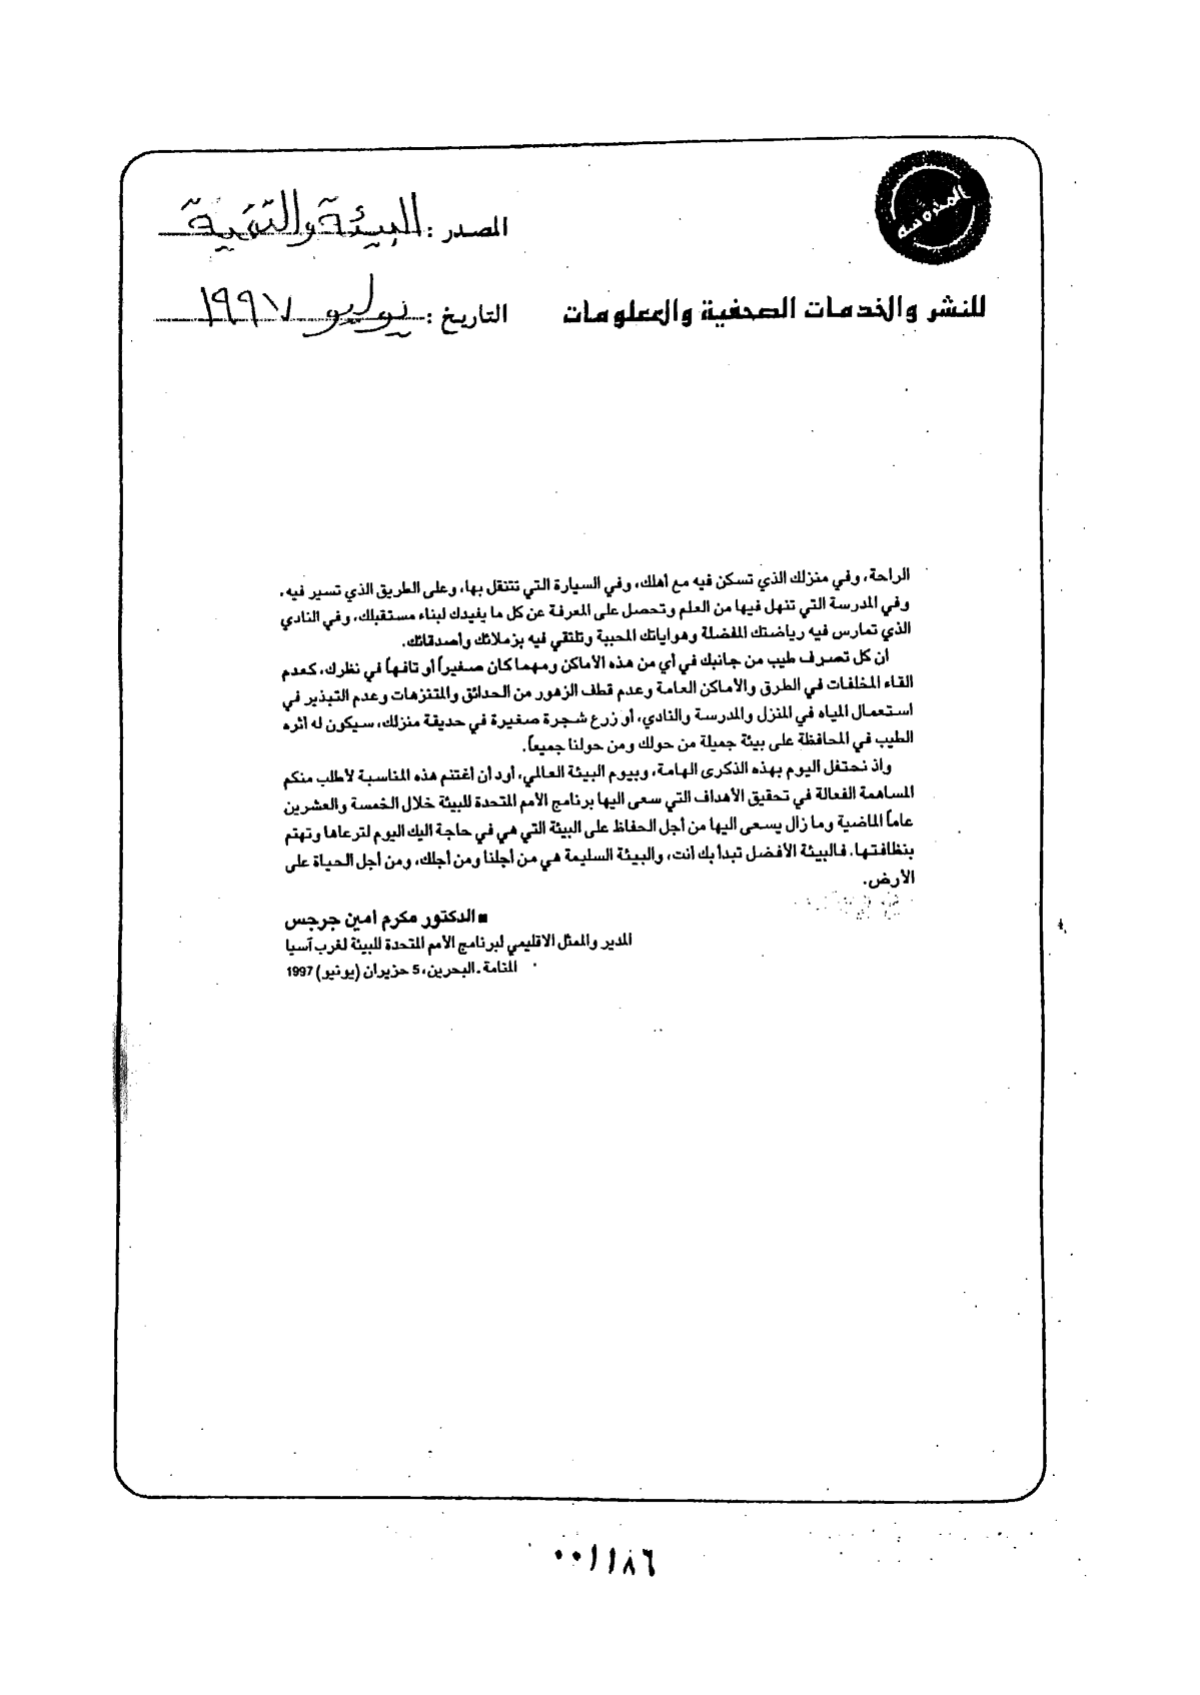 المصدر : البيئة والتنمية
للنشر والخدمات الصحفية والمعلومات
التاريخ : يوليو ١٩٩٧
الراحة، وفي منزلك الذي تسكن فيه مع أهلك، وفي السيارة التي تتنقل بها، وعلى الطريق الذي تسير فيه،
وفي المدرسة التي تنهل فيها من العلم وتحصل على المعرفة عن كل ما يفيدك لبناء مستقبلك، وفي النادي
الذي تمارس فيه رياضتك المفضلة وهواياتك المحببة وتلتقي فيه بزملائك وأصدقائك.
أن كل تصرف طيب من جانبك في أي من هذه الأماكن ومهما كان صغيراً أو تافهاً في نظرك، كعدم
القاء المخلفات في الطرق والأماكن العامة وعدم قطف الزهور من الحدائق والمتنزهات وعدم التبذير في
استعمال المياه في المنزل والمدرسة والنادي، أو زرع شجرة صغيرة في حديقة منزلك، سيكون له اثره
الطيب في المحافظة على بيئة جميلة من حولك ومن حولنا جميعاً.
واذ نحتفل اليوم بهذه الذكرى الهامة، وبيوم البيئة العالمي، أود أن أغتنم هذه المناسبة لأطلب منكم
المساهمة الفعالة في تحقيق الأهداف التي سعى اليها برنامج الأمم المتحدة للبيئة خلال الخمسة والعشرين
عاماً الماضية وما زال يسعى اليها من أجل الحفاظ على البيئة التي هي في حاجة اليك اليوم لترعاها وتهتم
بنظافتها. فالبيئة الأفضل تبدأ بك انت، والبيئة السليمة هي من أجلنا ومن أجلك، ومن أجل الحياة على
الأرض.
■ الدكتور مكرم امين جرجس
المدير والممثل الاقليمي لبرنامج الأمم المتحدة للبيئة لغرب آسيا
المنامة ـ البحرين، 5 حزيران (يونيو) 1997
٠٠١١٨٦